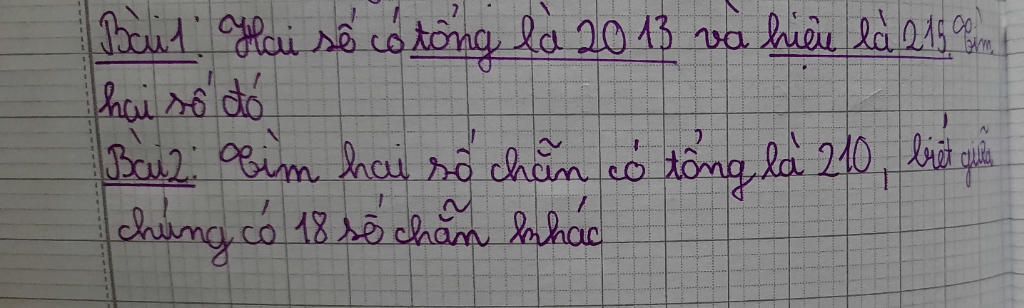 Bài 1: Hai số có tổng là 2013 và hiệu là 215 Tìm
hai số đó
Bài 2: Tìm hai số chẵn có tổng là 210, biết giữa
chúng có 18 số chẵn khác